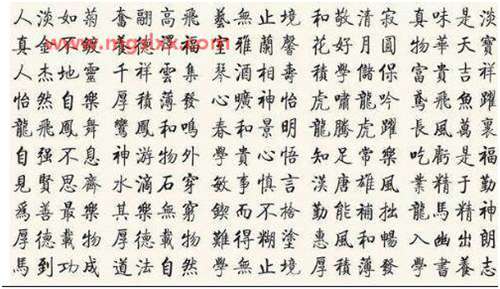 人淡如菊 奮翮高飛 藝無止境 和敬清寂 真味是淡
真金 澤 雅蘭馨 花好月圓 物華天寶
www.mgslxx.com
人杰地靈 千祥雲集 琴酒相壽 積學儲保 富貴吉祥
怡然自樂 厚積薄發 心曠神怡 虎嘯龍吟 鳶飛魚躍
龍飛鳳舞 鸞鳳和鳴 春和景明 龍騰虎躍 長風萬裏
自强不息 神游物外 學貴心悟 知足常樂 吃虧是福
見賢思齊 水滴石穿 敏事慎言 漢唐雄風 業精于勤
爲善最樂 其樂無窮 鍥而不捨 勤能補拙 龍馬精神
厚德載物 厚德載物 難得糊塗 惠風和暢 入幽出朗
馬到功成 道法自然 學無止境 厚積薄發 學書養志